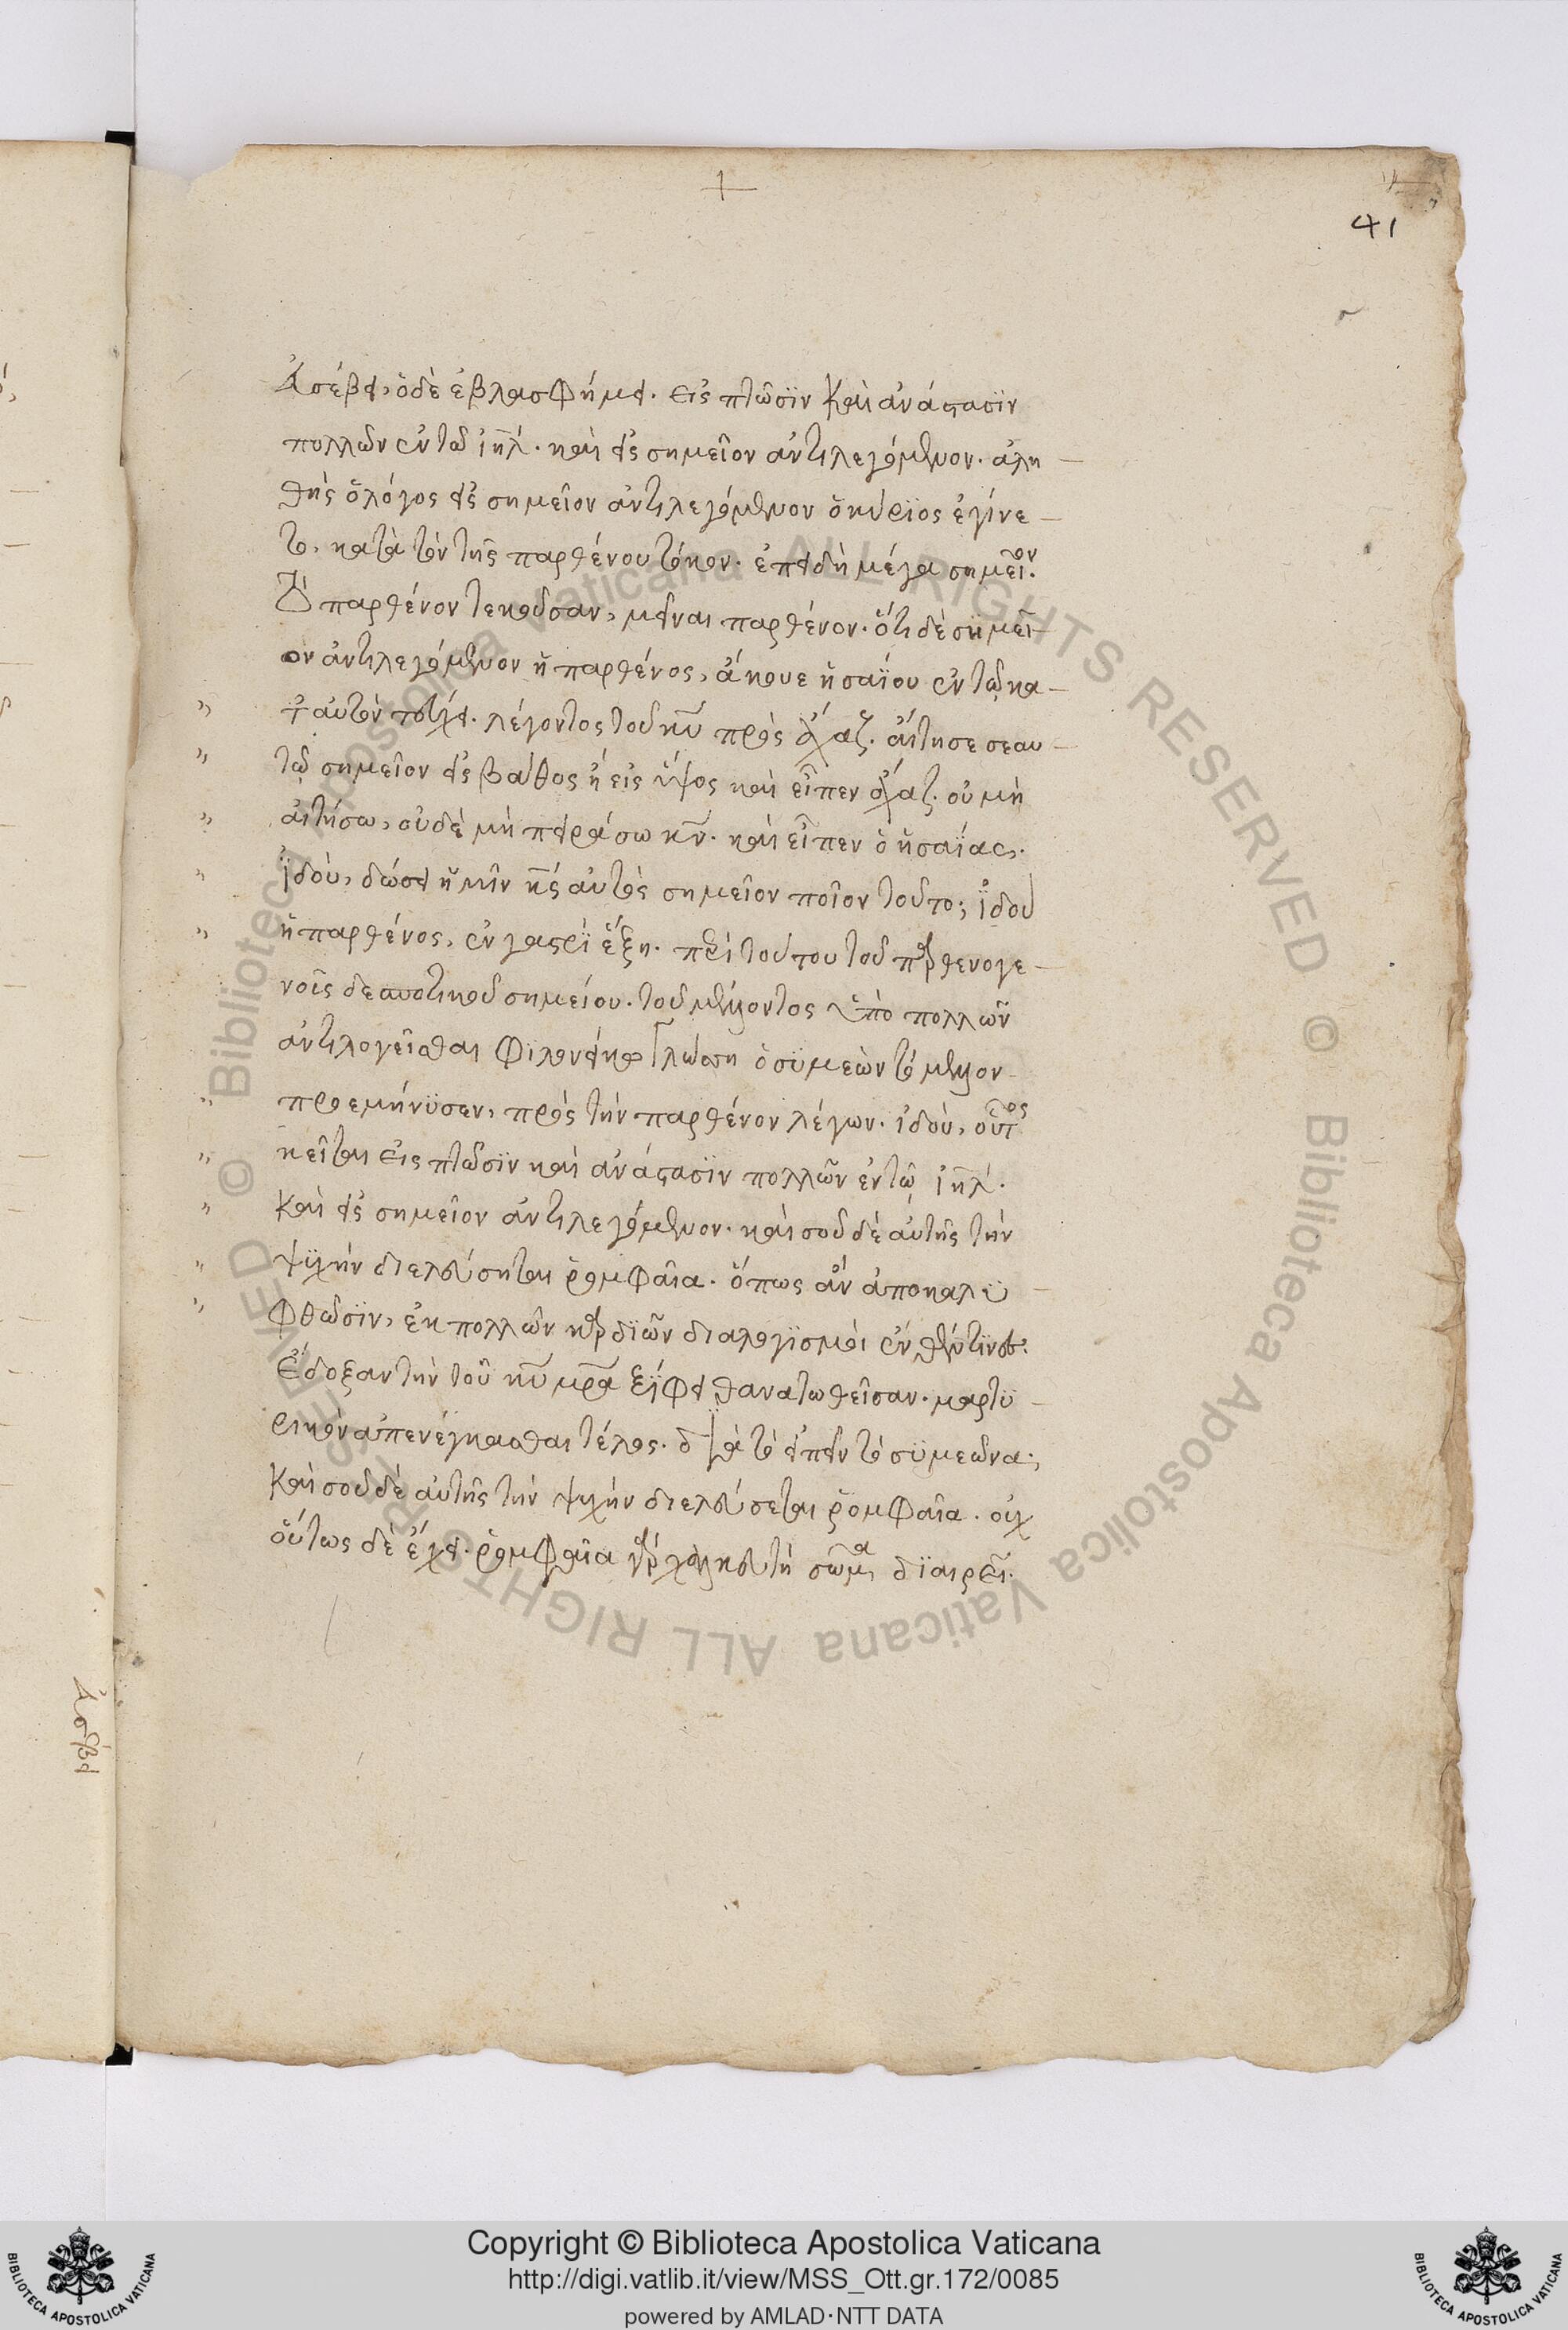 41
ἀσέβει, ὁ δὲ ἐβλασφήμει. εἰς πτῶσϊν καὶ ἀνάστασϊν
πολλῶν ἐν τῶ ἰηλ. καὶ εἰς σημεῖον ἀντιλεγόμενον. ἀλη
θὴς ὁ λόγος εἰς σημεῖον ἀντιλεγόμενον ὁ κύριος ἐγίνε
το, κατὰ τὸν τῆς παρθένου τόκον. ἐπειδὴ μέγα σημεῖον.
παρθένον τεκοῦσαν, μεῖναι παρθένον. ὅτι δὲ σημεῖ
ον ἀντιλεγόμενον ἡ παρθένος, ἄκουε ἡσαΐου ἐν τῶ κα
τ' αὐτὸν λέγοντος τοῦ κυ πρὸς ἄχαζ. αἴτησε σεαυ
τῶ σημεῖον εἰς βάθος ἢ εἰς ὕψος καὶ εἶπεν ἄχαζ. οὐ μὴ
αἰτήσω, οὐδὲ μὴ πειράσω κν. καὶ εἶπεν ὁ ἡσαΐας.
ἰδοὺ, δώσει ἡμῖν κς αὐτὸς σημεῖον ποῖον τοῦτο; ἰδοὺ
ἡ παρθένος, ἐν γαστρὶ ἕξη. περὶ τούτου τοῦ παρθενογε
νοῖς σημείου. τοῦ μέλλοντος ὑπὸ πολλῶν
ἀντιλογεῖσθαι φιλονείκω γλώσση ὁ συμεὼν τὸ μέλλον
προεμήνυσεν, πρὸς τὴν παρθένον λέγων. ἰδοὺ, οὗτος
κεῖται εἰς πτῶσϊν καὶ ἀνάστασϊν πολλῶν ἐν τῶ ἰηλ.
καὶ εἰς σημεῖον ἀντιλεγόμενον. καὶ σοῦ δὲ αὐτῆς τὴν
ψυχὴν διελεύσηται ῥομφαῖα. ὅπως ἂν ἀποκαλυ
φθῶσϊν, ἐκ πολλῶν καρδϊῶν διαλογϊσμοὶ ἐντεῦθεν τινὲς.
ἔδοξαν τὴν τοῦ κυ μρα ξίφει θανατωθεῖσαν. μαρτυ
ρικὸν ἀπενέγκασθαι τέλος. διὰ τὸ εἰπεῖν τὸ συμεῶνα;
καὶ σοῦ δὲ αὐτῆς τὴν ψυχὴν διελεύσεται ῥομφαῖα. οὐχ
οὕτως δὲ ἔχει. ῥομφαῖα γὰρ χαλκευτὴ σῶμα διαιρεῖ.
Copyright © Biblioteca Apostolica Vaticana
http://digi.vatlib.it/view/MSS_Ott.gr.172/0085
powered by AMLAD·NTT DATA